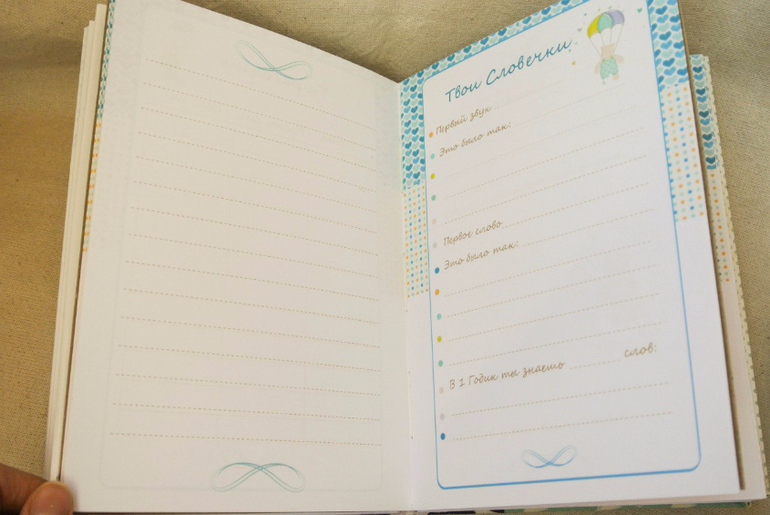 Твои Словечки
Первый звук
Это было так:
Первое слово
Это было так:
В 1 Годик ты знаешь слов: